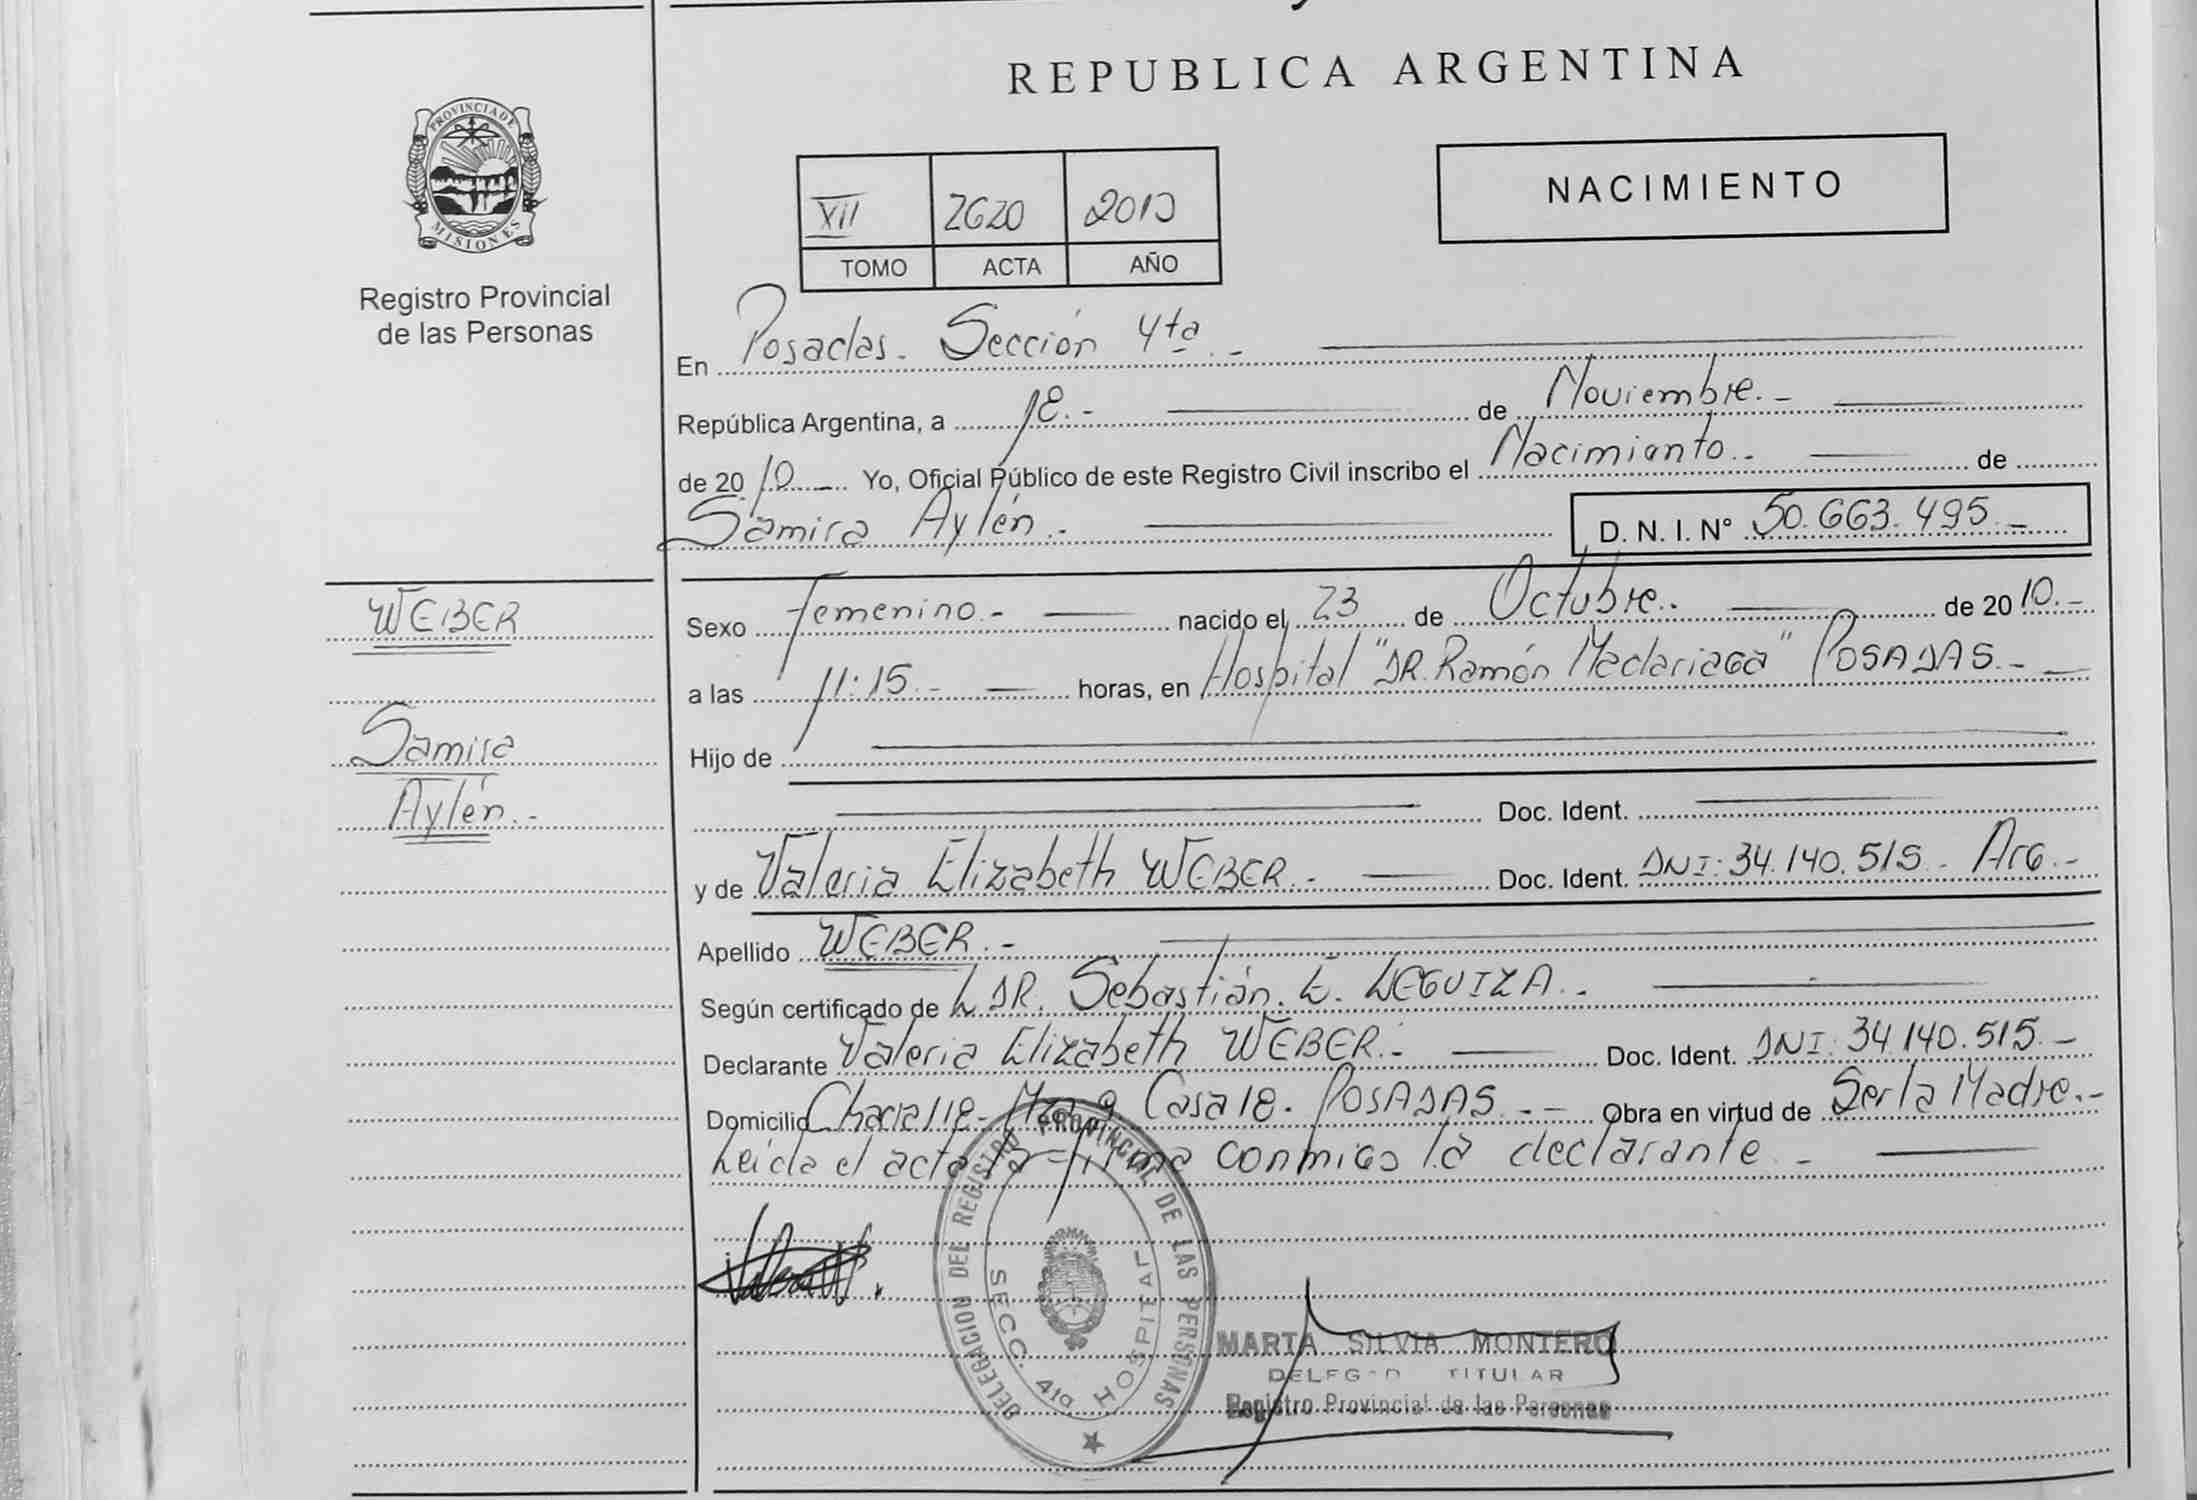 REPUBLICA ARGENTINA
PROVINCIA DE
MISIONES
Registro Provincial
de las Personas
XII 2620 2010
TOMO ACTA AÑO
NACIMIENTO
En Posadas. Sección 4ta.-
República Argentina, a 18.- de Noviembre.-
de 2010 Yo, Oficial Público de este Registro Civil inscribo el Nacimiento.- de
Samira Aylén.- D. N. I. N° 50.663.495.-
WEBER
Samira
Aylén.-
Sexo Femenino.- nacido el 23 de Octubre.- de 2010.-
a las 11:15.- horas, en Hospital "DR. Ramón Madariaga" POSADAS.-
Hijo de
Doc. Ident.
y de Valeria Elizabeth WEBER.- Doc. Ident. DNI: 34.140.515.- Arg.-
Apellido WEBER.-
Según certificado de DR. Sebastián. E. LEGUIZA.-
Declarante Valeria Elizabeth WEBER.- Doc. Ident. DNI: 34.140.515.-
Domicilio Chacra 118- Mza 9 Casa 18. POSADAS.- Obra en virtud de Ser la Madre.-
Leida el acta la firma conmigo la declarante.-
DELEGACION DEL REGISTRO PROVINCIAL DE LAS PERSONAS
SECC. 4ta HOSPITAL
MARTA SILVIA MONTERO
DELEGAD TITULAR
Registro Provincial de las Personas